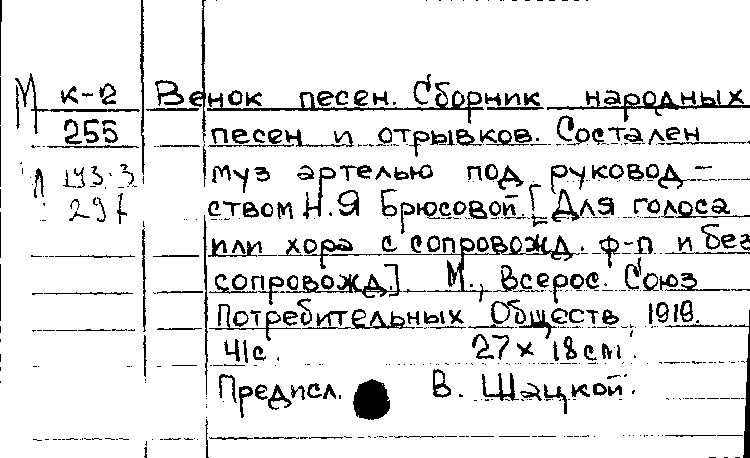 М к-2 Венок песен. Сборник народных
255 песен и отрывков. Состален
муз артелью под руковод-
ством Н.Я Брюсовой. [Для голоса
или хора с сопровожд. ф-п и без
сопровожд]. М., Всерос. Союз
Потребительных Обществ, 1919.
41с. 27 х 18см.
Предисл. В. Шацкой.